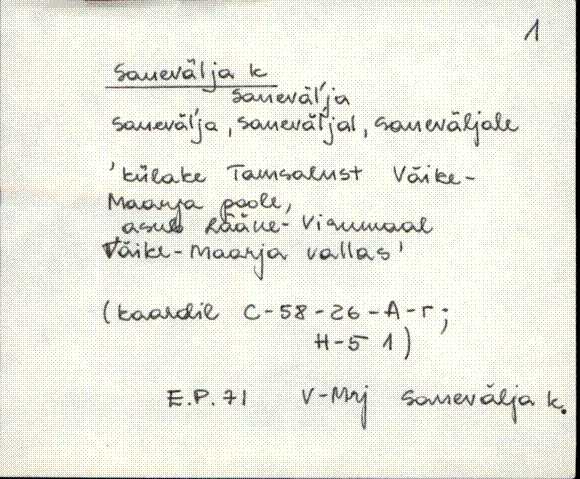 1
Sauevälja k
Sauevälja
Sauevälja, Saueväljal, Saueväljale
'külake Tamsalust Väike-
Maarja poole,
asub Lääne-Virumaal
Väike-Maarja vallas'
(kaardil C-58-26-A-r;
H-5 1)
E.P. 71 V-Mrj Sauevälja k.